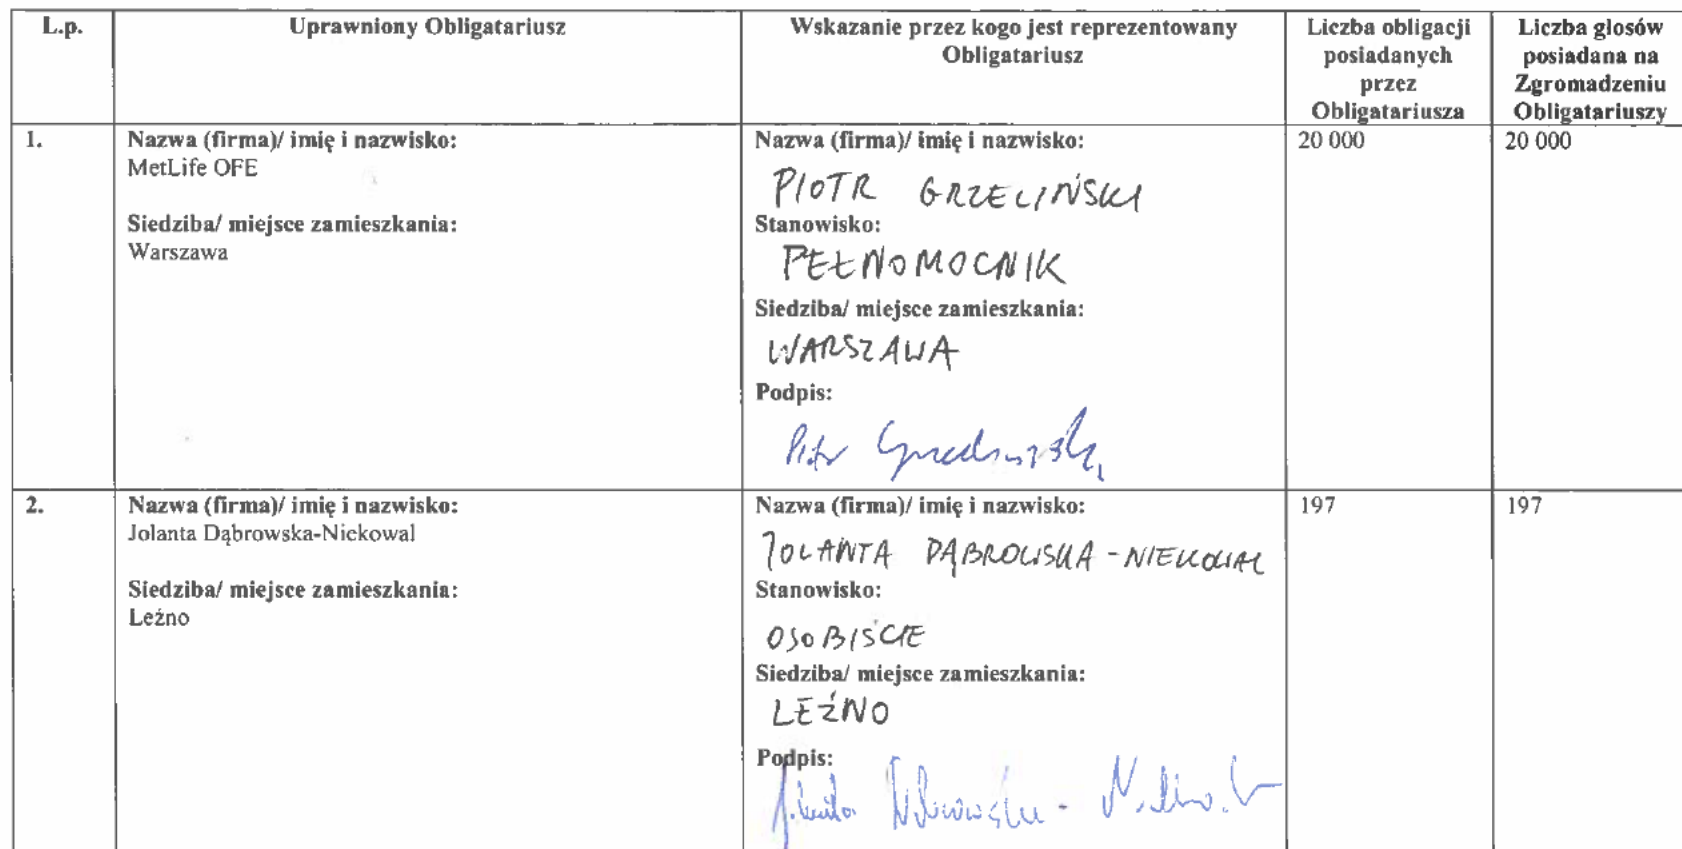 L.p.
Uprawniony Obligatariusz
Wskazanie przez kogo jest reprezentowany
Obligatariusz
Liczba obligacji
posiadanych
przez
Obligatariusza
Liczba głosów
posiadana na
Zgromadzeniu
Obligatariuszy
1.
Nazwa (firma)/ imię i nazwisko:
MetLife OFE
Siedziba/ miejsce zamieszkania:
Warszawa
Nazwa (firma)/ imię i nazwisko:
PIOTR GRZELIŃSKI
Stanowisko:
PEŁNOMOCNIK
Siedziba/ miejsce zamieszkania:
WARSZAWA
Podpis:
Piotr Grzeliński
20 000
20 000
2.
Nazwa (firma)/ imię i nazwisko:
Jolanta Dąbrowska-Niekowal
Siedziba/ miejsce zamieszkania:
Leźno
Nazwa (firma)/ imię i nazwisko:
JOLANTA DĄBROWSKA-NIEKOWAL
Stanowisko:
OSOBIŚCIE
Siedziba/ miejsce zamieszkania:
LEŹNO
Podpis:
197
197